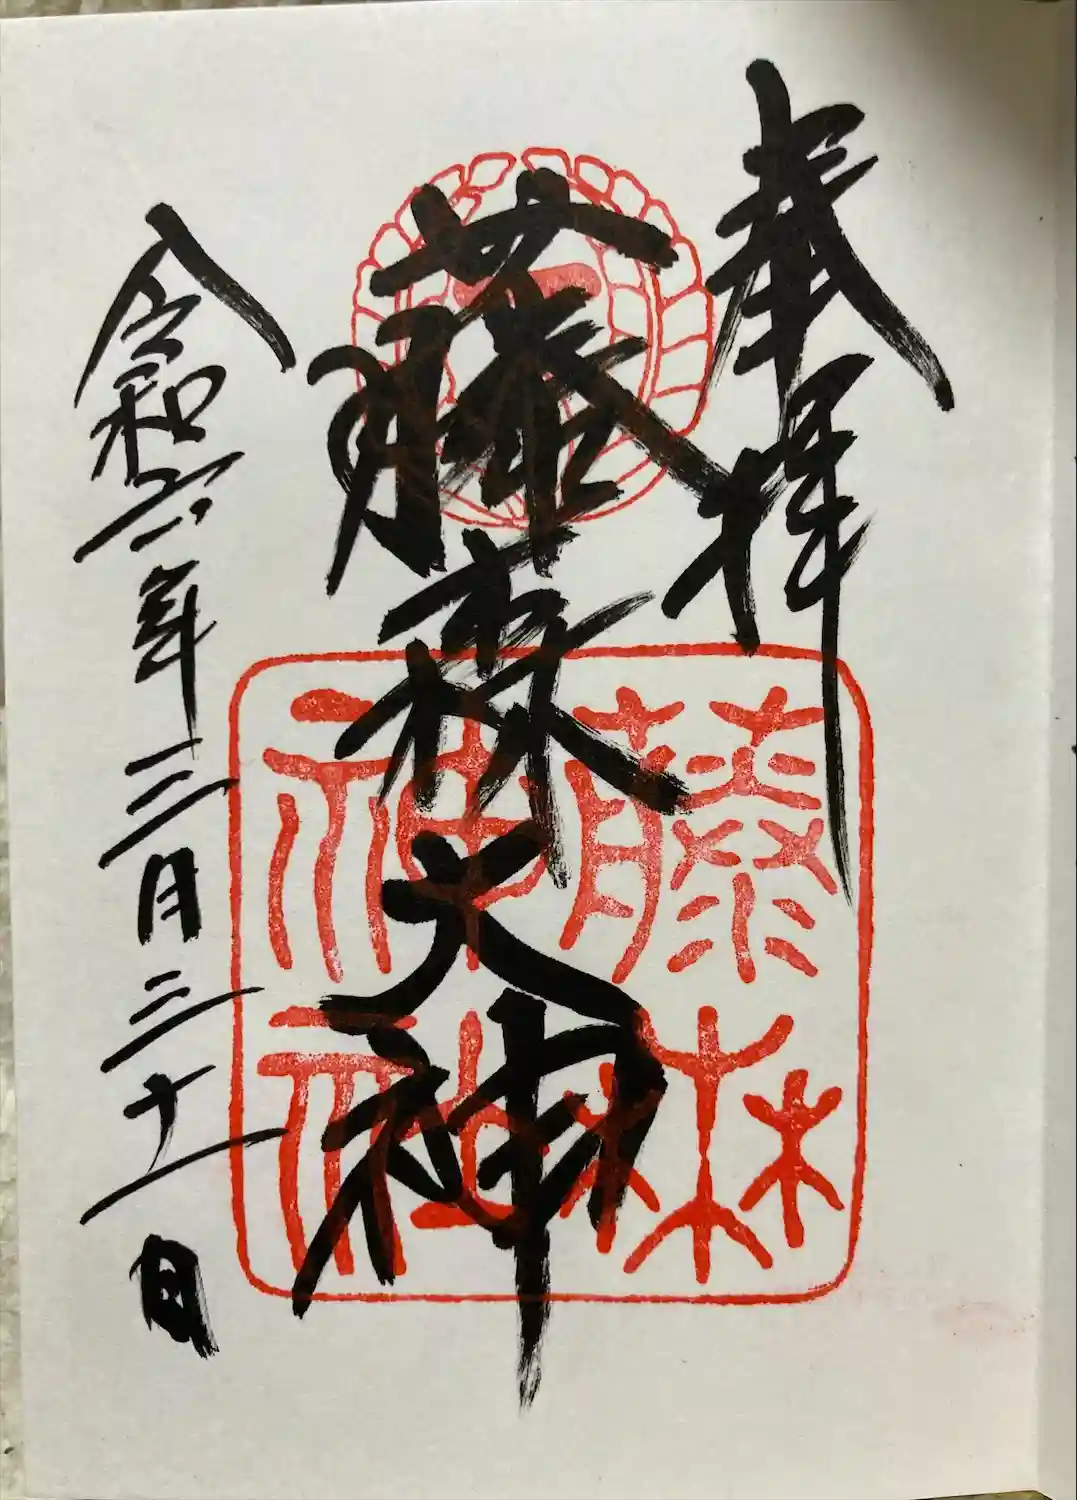 奉拝
藤森大神
藤森神社
令和六年三月三十一日